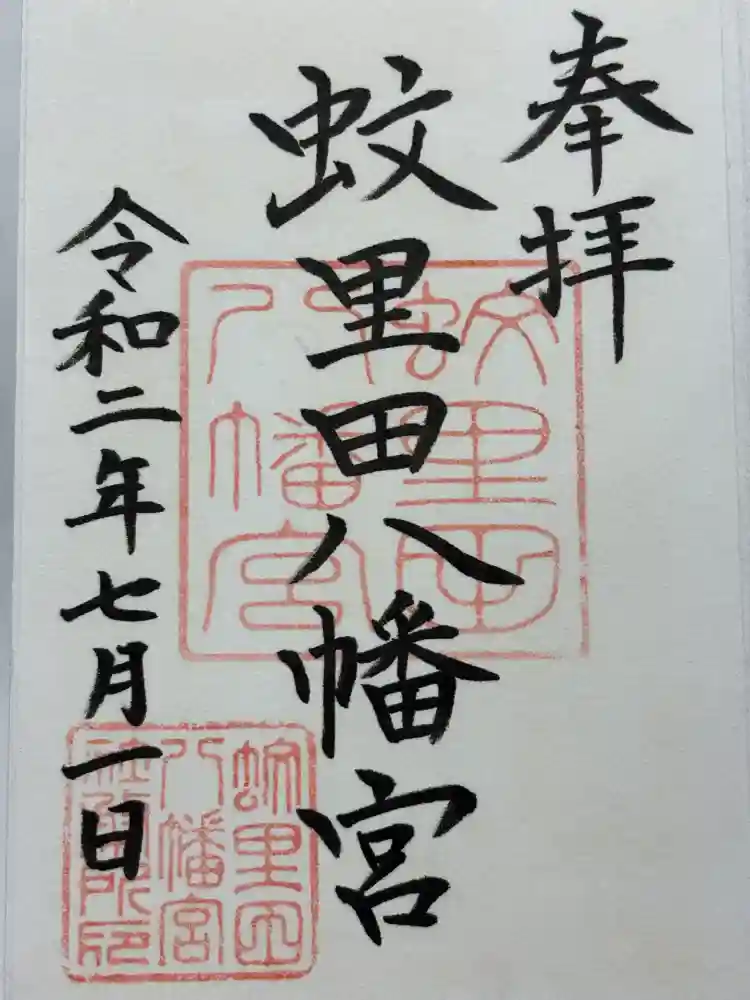 奉拝
蚊里田八幡宮
令和二年七月一日
蚊里田
八幡宮
蚊里田
八幡宮
社務所印